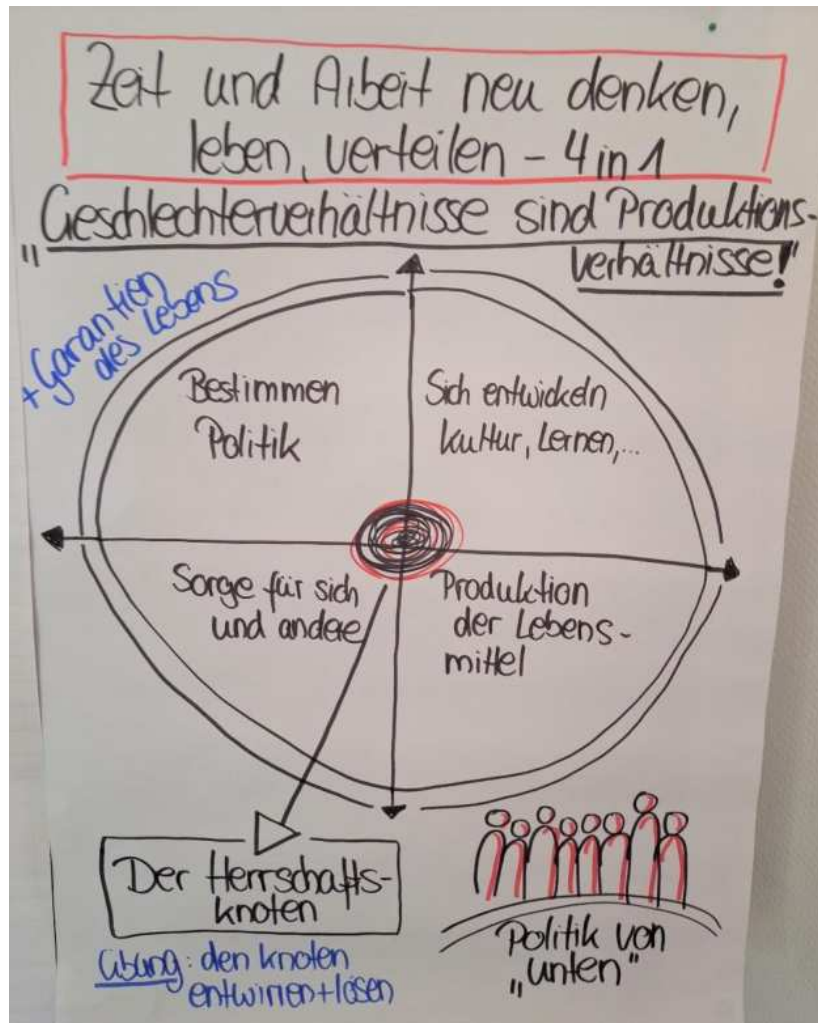 Zeit und Arbeit neu denken,
leben, verteilen – 4 in 1
"Geschlechterverhältnisse sind Produktions-
verhältnisse!"
+ Garantien
des Lebens
Bestimmen
Politik
Sich entwickeln
Kultur, Lernen,...
Sorge für sich
und andere
Produktion
der Lebens-
mittel
Der Herrschafts-
knoten
Übung: den Knoten
entwirren + lösen
Politik von
"unten"